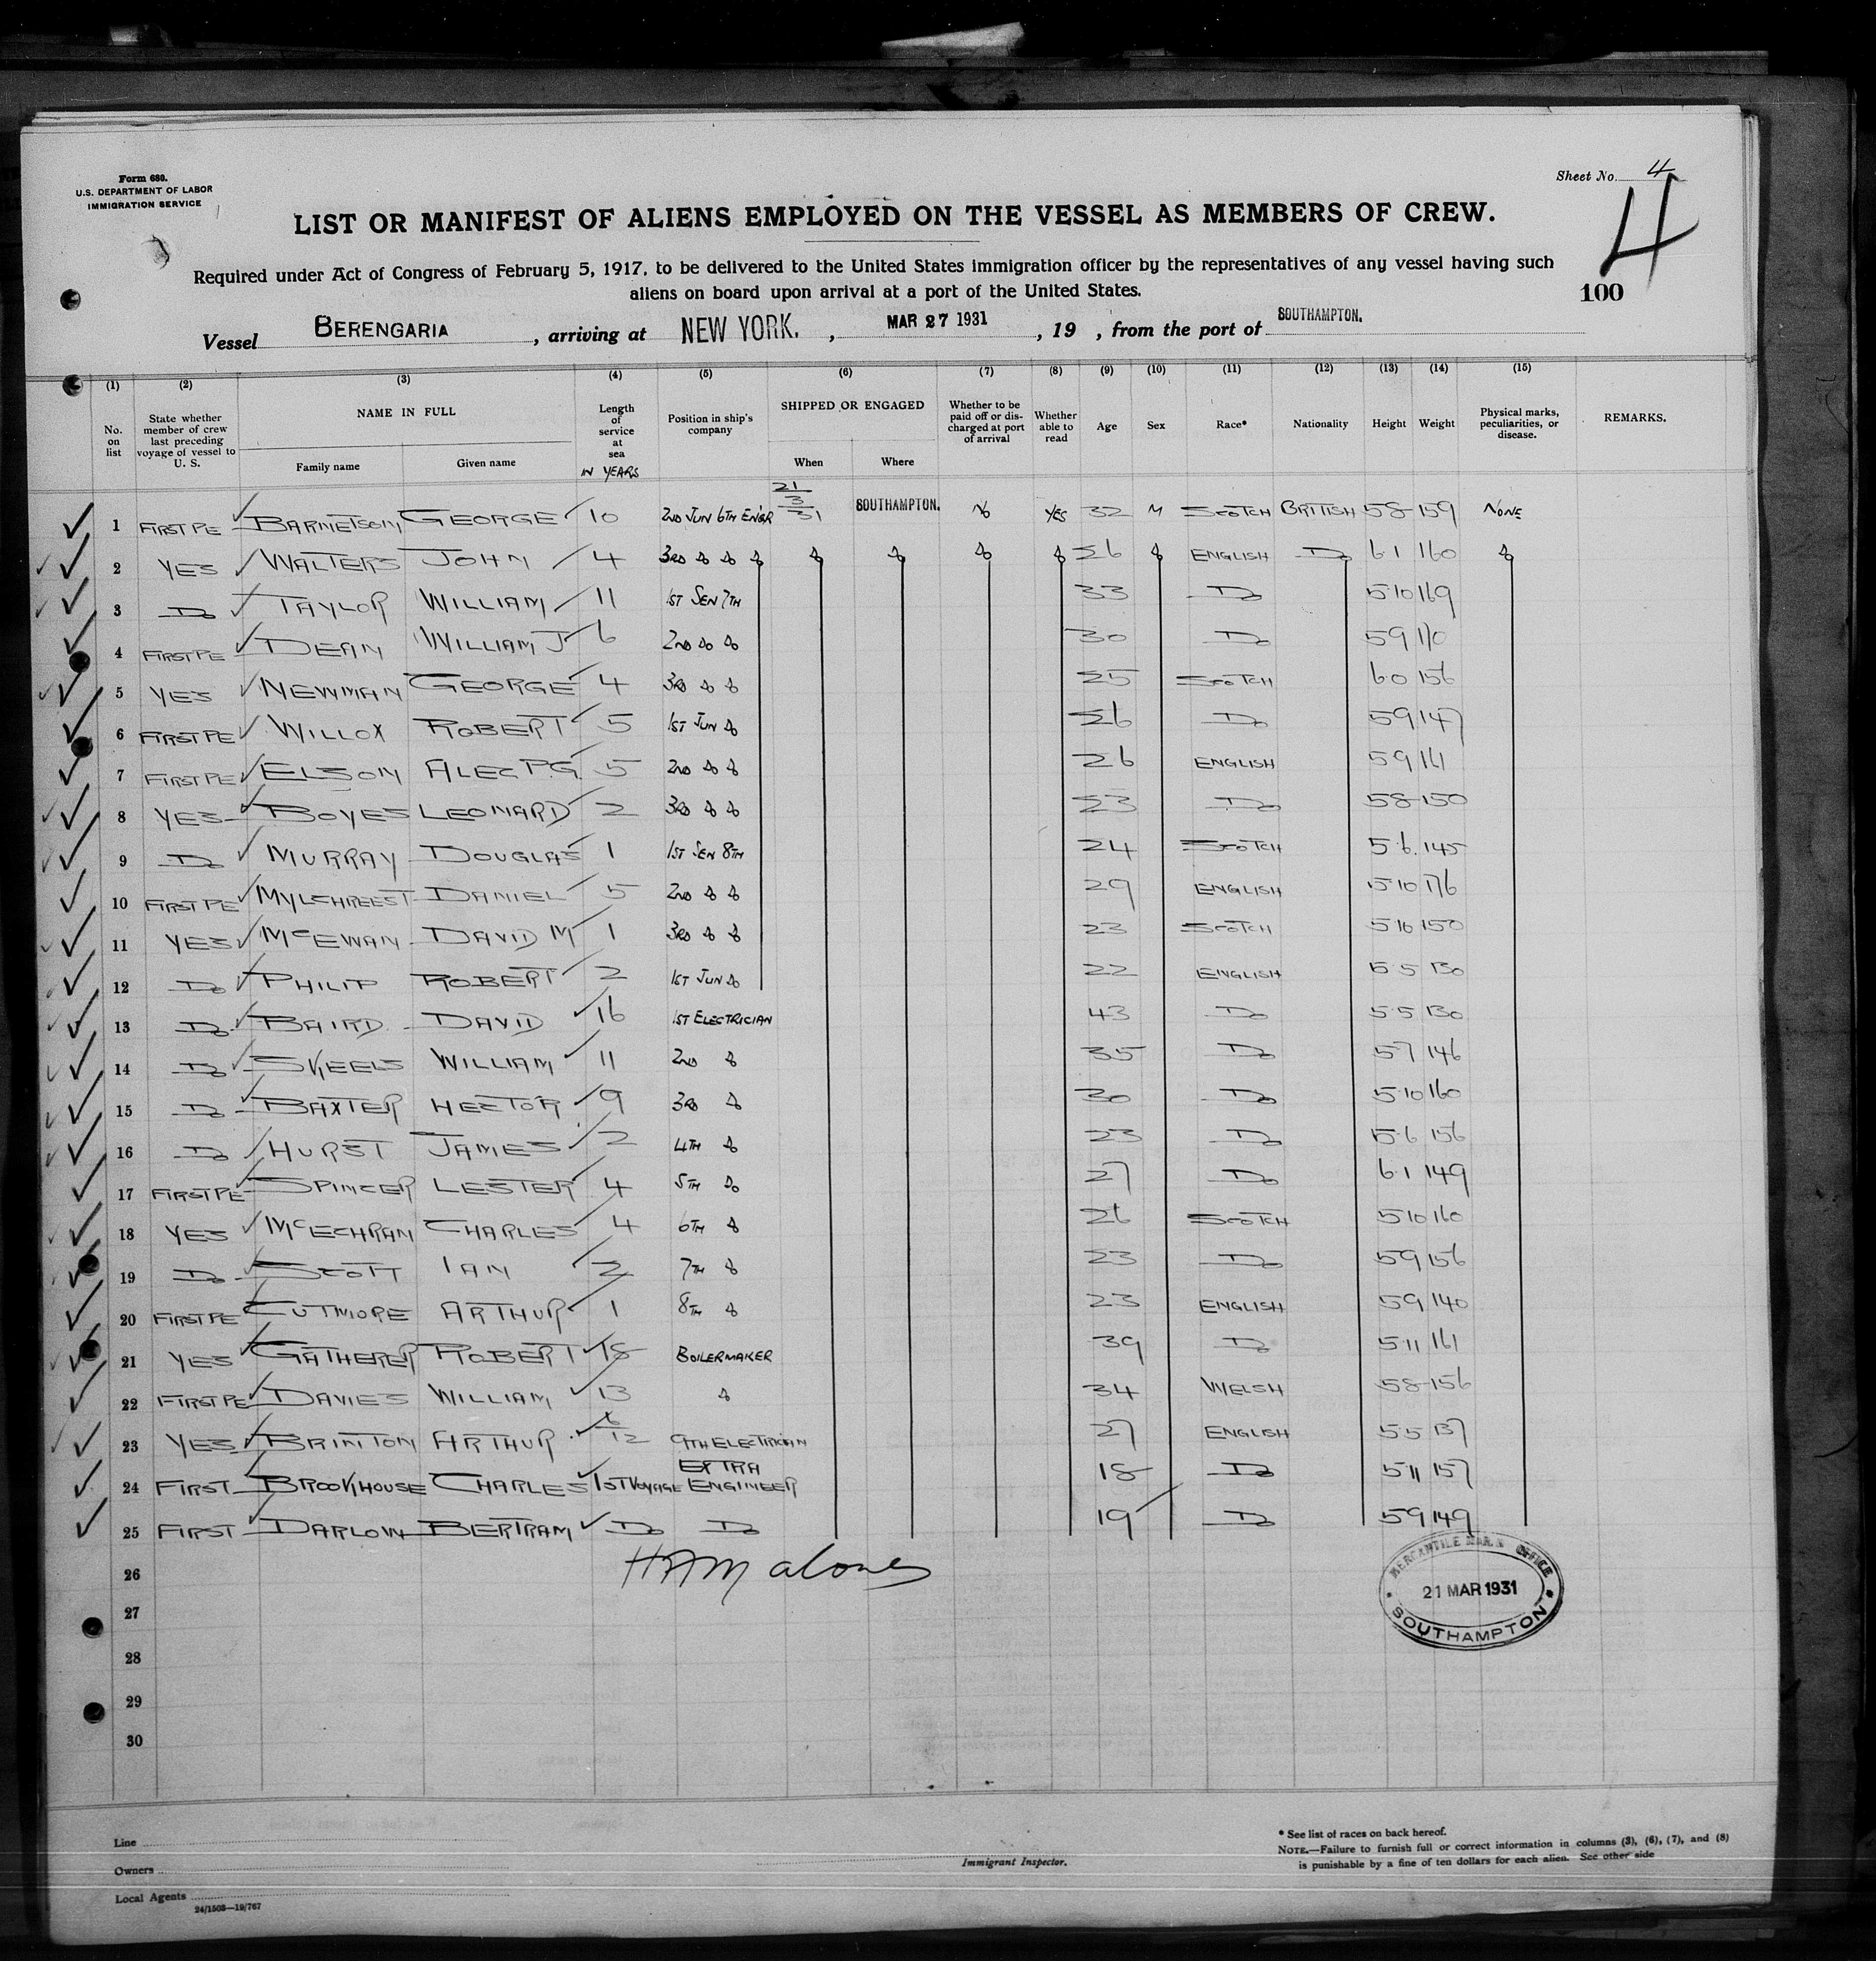 Form 680.
U.S. DEPARTMENT OF LABOR
IMMIGRATION SERVICE
Sheet No. 4
4
LIST OR MANIFEST OF ALIENS EMPLOYED ON THE VESSEL AS MEMBERS OF CREW.
Required under Act of Congress of February 5, 1917, to be delivered to the United States immigration officer by the representatives of any vessel having such
aliens on board upon arrival at a port of the United States.
100
Vessel BERENGARIA, arriving at NEW YORK., MAR 27 1931, 19 , from the port of SOUTHAMPTON.
(1) (2) (3) (4) (5) (6) (7) (8) (9) (10) (11) (12) (13) (14) (15)
No. on list
State whether member of crew last preceding voyage of vessel to U. S.
NAME IN FULL
Family name Given name
Length of service at sea
IN YEARS
Position in ship's company
SHIPPED OR ENGAGED
When Where
Whether to be paid off or discharged at port of arrival
Whether able to read
Age
Sex
Race*
Nationality
Height
Weight
Physical marks, peculiarities, or disease.
REMARKS.
1 FIRST PE BARNETSON GEORGE 10 2ND JUN 6TH ENGR 21/3/31 SOUTHAMPTON. NO YES 32 M SCOTCH BRITISH 58 159 NONE
2 YES WALTERS JOHN 4 3RD DO DO DO DO DO DO DO 26 DO ENGLISH DO 6.1 160 DO
3 DO TAYLOR WILLIAM 11 1ST SEN 7TH 33 DO 5.10 169
4 FIRST PE DEAN WILLIAM J 6 2ND DO DO 30 DO 59 170
5 YES NEWMAN GEORGE 4 3RD DO DO 25 SCOTCH 6.0 156
6 FIRST PE WILLOX ROBERT 5 1ST JUN DO 26 DO 59 147
7 FIRST PE ELSON ALEC P.G. 5 2ND DO DO 26 ENGLISH 59 161
8 YES BOYES LEONARD 2 3RD DO DO 23 DO 58 150
9 DO MURRAY DOUGLAS 1 1ST SEN 8TH 24 SCOTCH 5.6 145
10 FIRST PE MYLCHREEST DANIEL 5 2ND DO DO 29 ENGLISH 5.10 176
11 YES McEWAN DAVID M 1 3RD DO DO 23 SCOTCH 5 10 150
12 DO PHILIP ROBERT 2 1ST JUN DO 22 ENGLISH 5.5 130
13 DO BAIRD DAVID 16 1ST ELECTRICIAN 43 DO 5.5 130
14 DO SKEELS WILLIAM 11 2ND DO 35 DO 57 146
15 DO BAXTER HECTOR 9 3RD DO 30 DO 5.10 160
16 DO HURST JAMES 2 4TH DO 23 DO 5.6 156
17 FIRST PE SPINCER LESTER 4 5TH DO 27 DO 6.1 149
18 YES McECHRAN CHARLES 4 6TH DO 26 SCOTCH 5.10 160
19 DO SCOTT IAN 2 7TH DO 23 DO 59 156
20 FIRST PE CUTMORE ARTHUR 1 8TH DO 23 ENGLISH 59 140
21 YES GATHERER ROBERT 18 BOILERMAKER 39 DO 5.11 161
22 FIRST PE DAVIES WILLIAM 13 DO 34 WELSH 58 156
23 YES BRINTON ARTHUR 6/12 9TH ELECTRICIAN 27 ENGLISH 5.5 137
24 FIRST BROOKHOUSE CHARLES 1ST VOYAGE EXTRA ENGINEER 18 DO 5 11 157
25 FIRST DARLOW BERTRAM DO DO 19 DO 59 149
26
27
28
29
30
MERCANTILE MAR. OFFICE
21 MAR 1931
SOUTHAMPTON
Line
Owners
Local Agents
24/1508—19/767
Immigrant Inspector.
* See list of races on back hereof.
NOTE.—Failure to furnish full or correct information in columns (3), (6), (7), and (8)
is punishable by a fine of ten dollars for each alien. See other side